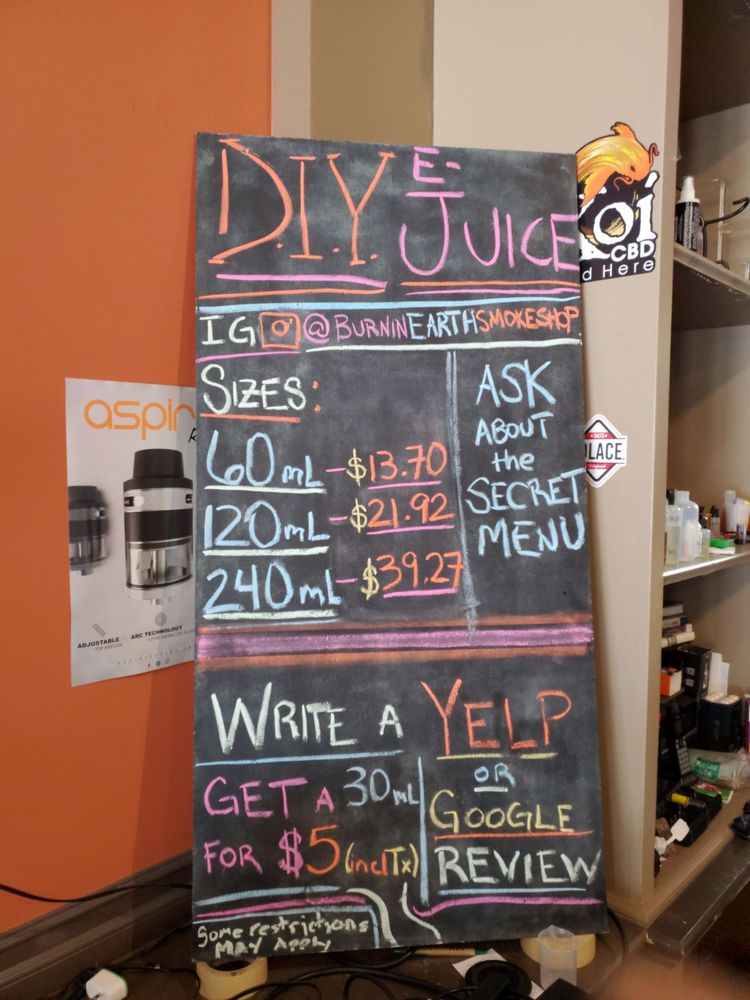 D.I.Y. E-JUICE
IG @BURNINEARTHSMOKESHOP
SIZES:
60mL-$13.70
120mL-$21.92
240mL-$39.27
ASK
ABOUT
the
SECRET
MENU
WRITE A YELP
OR
GOOGLE
REVIEW
GET A 30mL
FOR $5 (inclTx)
Some restrictions
MAY APPLY
aspir
ADJUSTABLE
ARC TECHNOLOGY
Koi
CBD
d Here
PLACE.